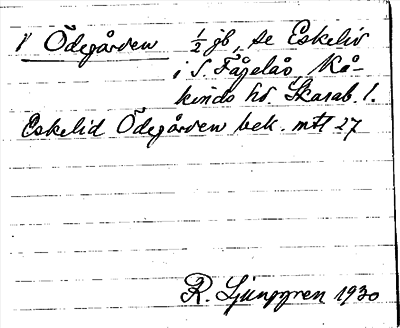 V Ödegården ½ gb, se Eskelid
i S. Fågelås, Kå-
kinds hd. Skarab. l.
Eskelid Ödegården bek. mtl 27
R. Ljunggren 1930